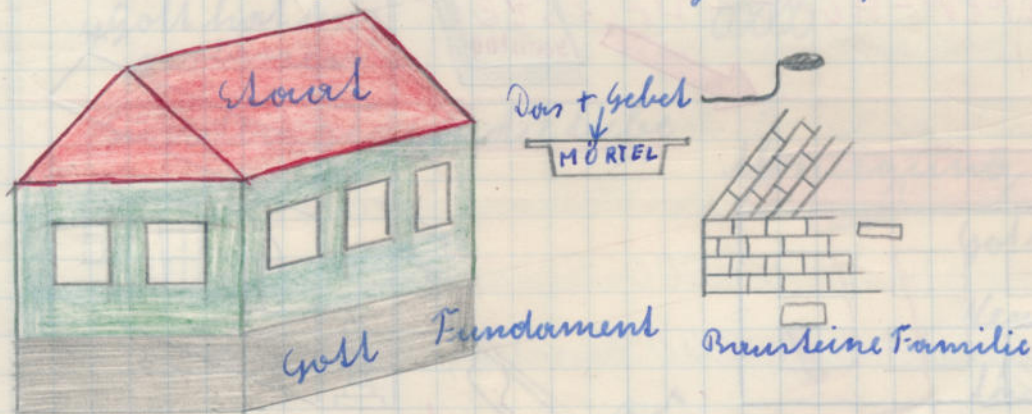 Staat
Das + Gebet
MÖRTEL
Gott Fundament
Bausteine Familie